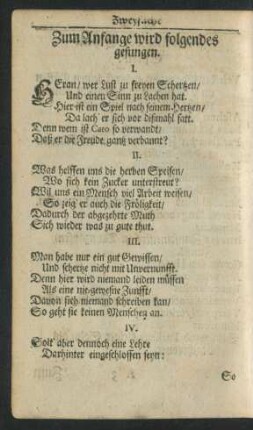 Zum Anfange wird folgendes
gesungen.
I.
HEran/ wer Lust zu freyen Schertzen/
Und einen Sinn zu Lachen hat.
Hier ist ein Spiel nach seinem Hertzen/
Da lach' er sich vor dißmahl satt.
Denn wem ist Cato so verwandt/
Daß er die Freude gantz verbannt?
II.
Was helffen uns die herben Speisen/
Wo sich kein Zucker unterstreut?
Wil uns ein Mensch viel Arbeit weisen/
So zeig er auch die Fröligkeit/
Dadurch der abgezehrte Muth
Sich wieder was zu gute thut.
III.
Man habe nur ein gut Gewissen/
Und schertze nicht mit Unvernunfft.
Denn hier wird niemand leiden müssen
Als eine nie-gewesne Zunfft/
Davon sich niemand schreiben kan/
So geht sie keinen Menschen an.
IV.
Solt' aber dennoch eine Lehre
Darhinter eingeschlossen seyn:
So